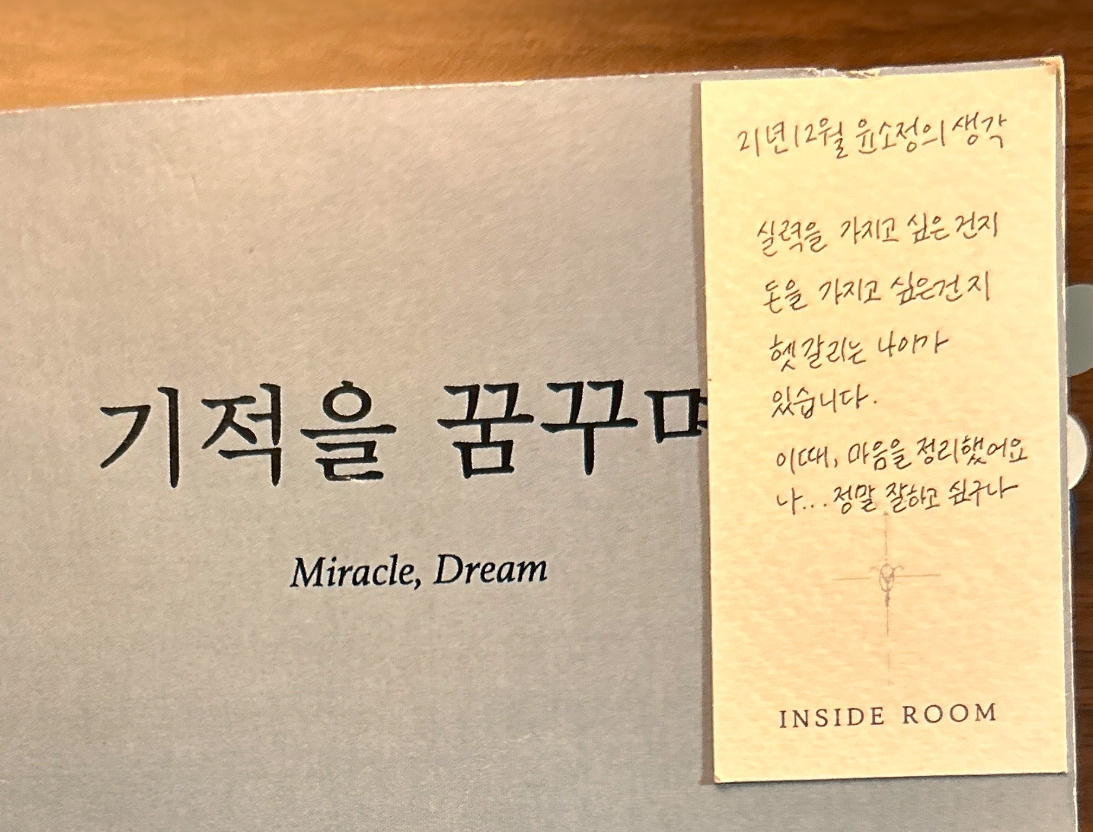 기적을 꿈꾸며
Miracle, Dream
21년 12월 윤소정의 생각
실력을 가지고 싶은 건지
돈을 가지고 싶은건지
헷갈리는 나이가
있습니다.
이때, 마음을 정리했어요
나... 정말 잘하고 싶구나
INSIDE ROOM